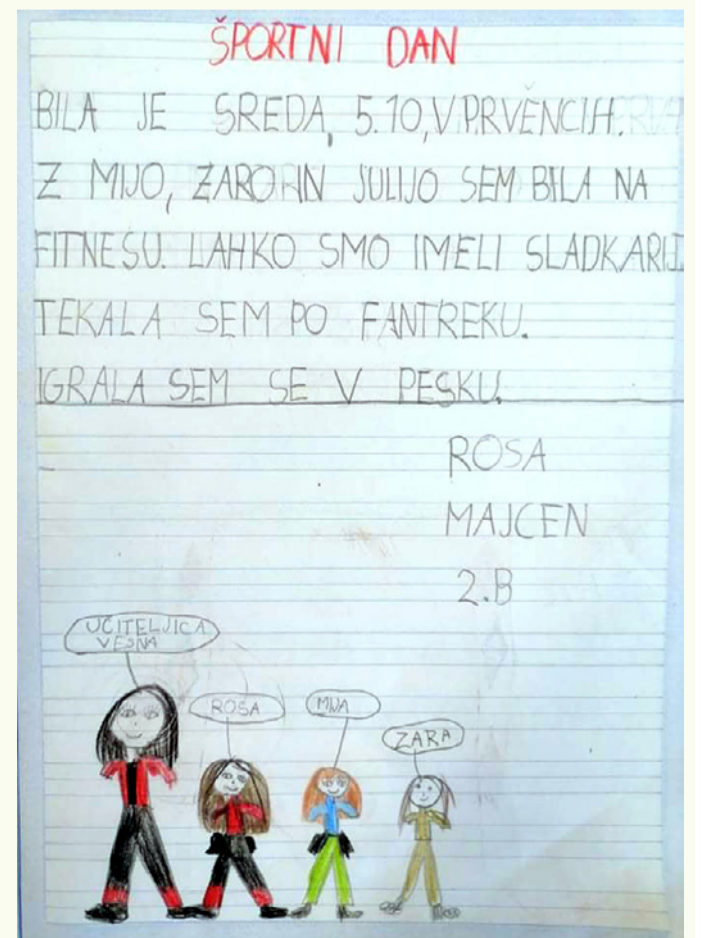 ŠPORTNI DAN
BILA JE SREDA, 5.10, V PRVENCIH.
Z MIJO, ZARO IN JULIJO SEM BILA NA
FITNESU. LAHKO SMO IMELI SLADKARIJ
TEKALA SEM PO FANTREKU.
IGRALA SEM SE V PESKU.
ROSA
MAJCEN
2.B
UČITELJICA
VESNA
ROSA
MIJA
ZARA